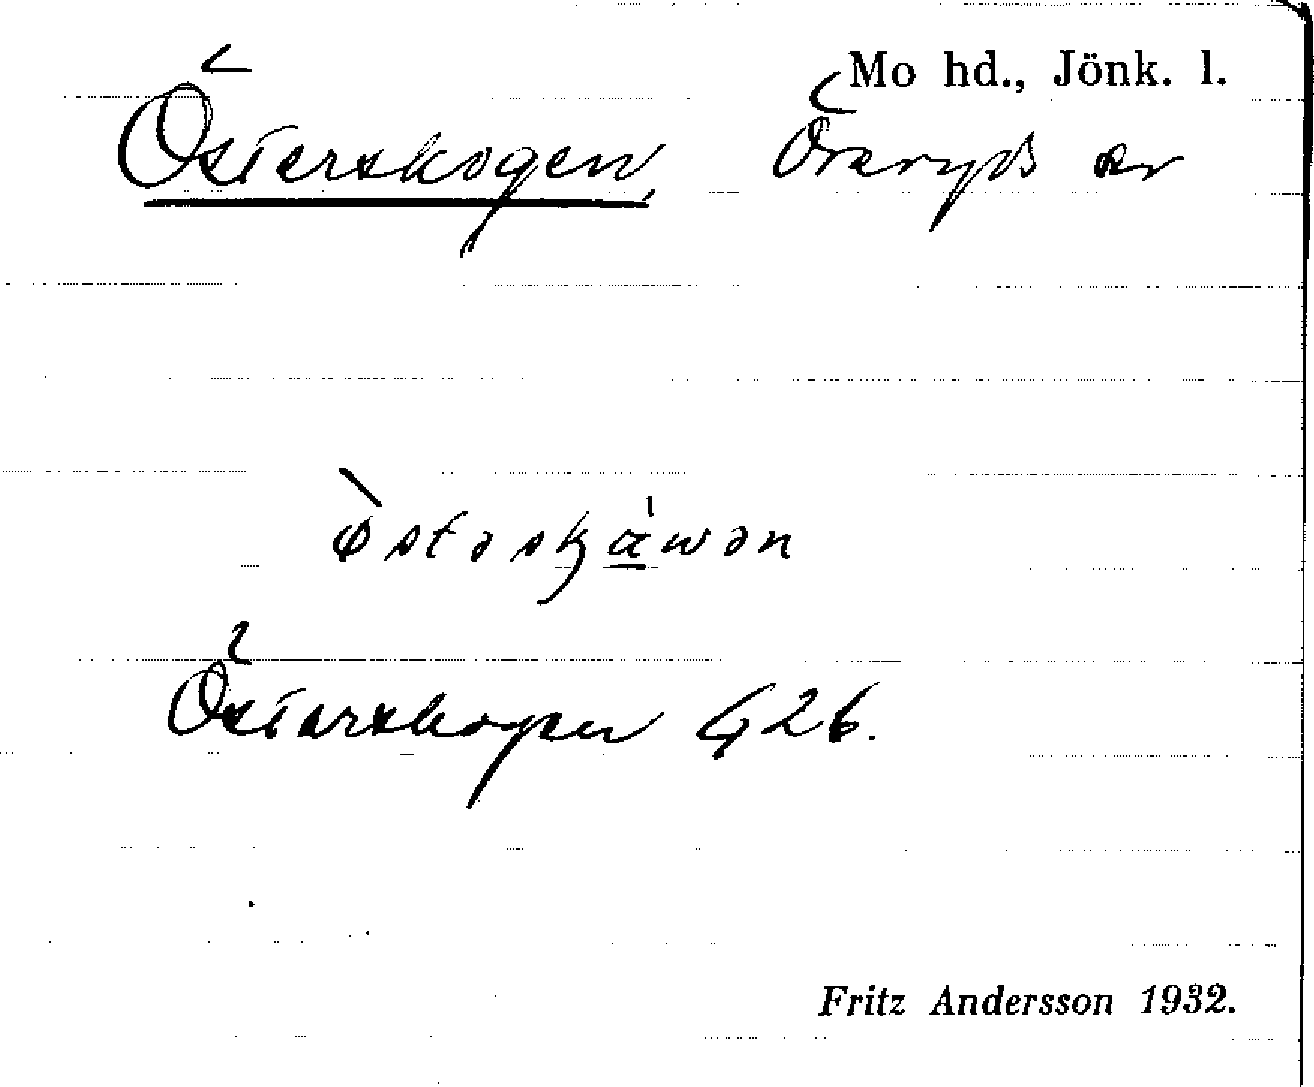 Mo hd., Jönk. l.
Österskogen, Öreryds sn
Österskogen G 26.
Fritz Andersson 1932.